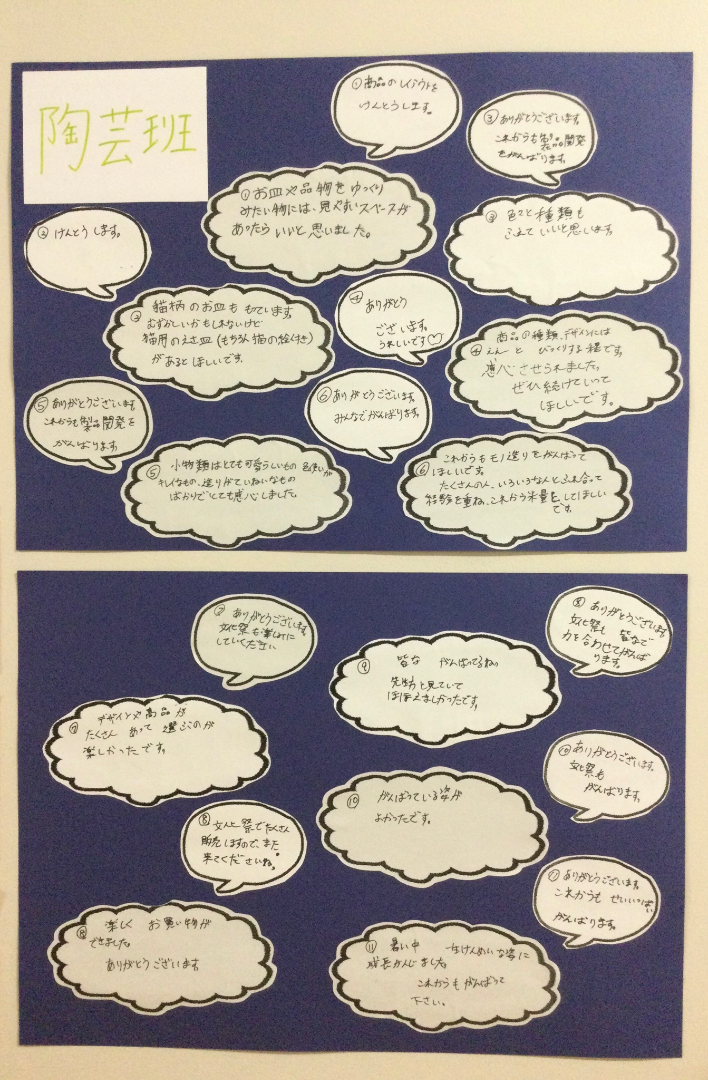 陶芸班
①商品のレイアウトを
けんとうします。
③ありがとうございます
これからも製品開発
をがんばります。
①お皿や品物をゆっくり
みたい物には、見やすいスペースが
あったらいいと思いました。
②けんとうします。
③色々と種類も
ふえていいと思います。
②猫柄のお皿ももています。
むずかしいかもしれないけど
猫用のえさ皿(もちろん猫の絵付き)
があるとほしいです。
④ありがとう
ございます。
うれしいです♡
④商品の種類、デザインには
えんーと びっくりする程です。
感心させられました。
ぜひ続けていって
ほしいです。
⑤ありがとうございます
これからも製品開発を
がんばります
⑥ありがとうございます。
みんなでがんばります。
⑤小物類はとても可愛らしいもの 色使いが
キレイなもの、造りがていねいなもの
ばかりでとても感心しました。
⑥これからもモノ造りをがんばって
ほしいです。
たくさんの人、いろいろな人とふれ合って
経験を重ね、これから
してほしい
です。
⑦ありがとうございます。
文化祭も楽しみに
していてください
⑧ありがとうございます
文化祭も皆なで
力を合わせてがんば
ります。
⑨皆な がんばってるねぃ
先助と見ていて
ほほえましかったです。
⑦デザインや商品が
たくさん あって 選ぶのが
楽しかったです。
⑩ありがとうございます。
文化祭も
がんばります。
⑩がんばっている姿が
よかったです。
⑧文化祭でたくさん
販売しますので、また
来てくださいね。
⑪ありがとうございます。
これからも せいいっぱい
がんばります。
⑧楽しく お買い物が
できました。
ありがとうございます
⑪暑い中 一生けんめいな姿に
成長かんじました。
これからもがんばって
下さい。